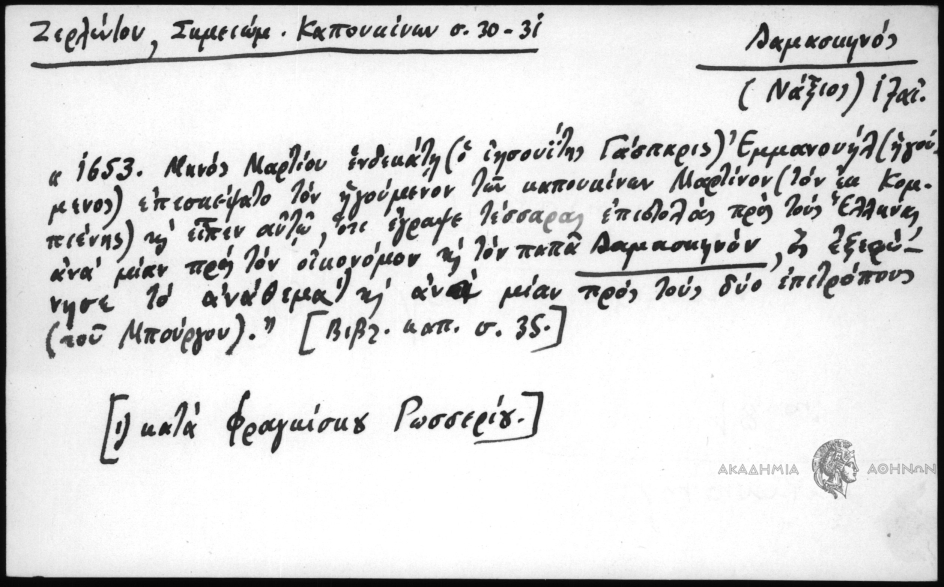 Ζερλέντου, Σημειώμ. Καπουκίνων σ. 30-31
Δαμασκηνός
(Νάξιος) ιζαι.
"1653. Μηνός Μαρτίου ἑνδεκάτῃ (ὁ ἰησουίτης Γάσπαρις) Ἐμμανουήλ (ἡγού-
μενος) ἐπεσκέψατο τόν ἡγούμενον τῶν καπουκίνων Μαρτῖνον (τόν ἐκ Κομ-
πιένης) κ εἶπεν αὐτῷ, ὅτι ἔγραψε τέσσαρας ἐπιστολάς πρός τούς Ἕλληνας
ἀνά μίαν πρός τόν οἰκονόμον κ τόν παπᾶ Δαμασκηνόν, ὅς ἐξεφώ-
νησε τό ἀνάθεμα¹⁾ κ ἀνά μίαν πρός τούς δύο ἐπιτρόπους
(τοῦ Μπούργου)." [Βιβλ. καπ. σ. 35.]
[1) κατά Φραγκίσκου Ρωσσερίου.]
ΑΚΑΔΗΜΙΑ ΑΘΗΝΩΝ